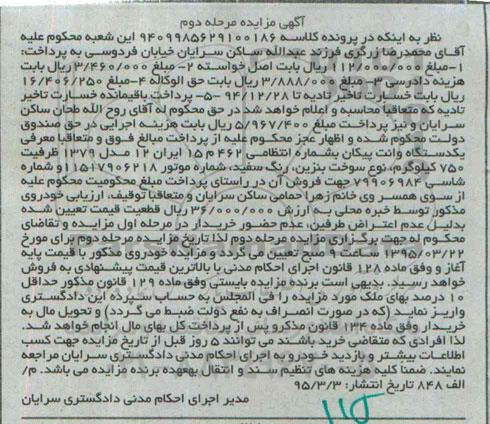 آگهی مزایده مرحله دوم
نظر به اینکه در پرونده کلاسه ۹۴۰۹۹۸۵۶۲۹۱۰۰۱۸۶ این شعبه محکوم علیه
آقای محمدرضا زرگری فرزند عبدالله ساکن سرایان خیابان فردوسی به پرداخت:
۱-مبلغ ۱۱۲/۰۰۰/۰۰۰ ریال بابت اصل خواسته ۲- مبلغ ۳/۴۶۰/۰۰۰ ریال بابت
هزینه دادرسی ۳- مبلغ ۳/۸۸۸/۰۰۰ ریال بابت حق الوکاله ۴-مبلغ ۱۶/۴۰۶/۲۵۰
ریال بابت خسارت تاخیر تادیه تا ۹۴/۱۲/۲۸ -۵- پرداخت باقیمانده خسارت تاخیر
تادیه که متعاقبا محاسبه و اعلام خواهد شد در حق محکوم له آقای روح الله طحان ساکن
سرایان و نیز پرداخت مبلغ ۵/۹۶۷/۴۰۰ ریال بابت هزینه اجرایی در حق صندوق
دولت محکوم شده و اظهار عجز محکوم علیه از پرداخت مبالغ فوق و متعاقبا معرفی
یکدستگاه وانت پیکان بشماره انتظامی ۴۶۲م۱۵ ایران ۱۲ مدل ۱۳۷۹ ظرفیت
۷۵۰ کیلوگرم، نوع سوخت بنزین، رنگ سفید، شماره موتور ۱۱۵۱۷۹۰۶۲۱۸و
شاسی ۷۹۹۰۶۹۸۴ جهت فروش آن در راستای پرداخت مبلغ محکومیت محکوم علیه
از سوی همسر وی خانم زهرا حمامی ساکن سرایان و متعاقبا توقیف، ارزیابی خودروی
مذکور توسط خبره محلی به ارزش ۳۶/۰۰۰/۰۰۰ ریال قطعیت قیمت تعیین شده
بدلیل عدم اعتراض طرفین، عدم حضور خریدار در مرحله اول مزایده و تقاضای
محکوم له جهت برگزاری مزایده مرحله دوم لذا تاریخ مزایده مرحله دوم برای مورخ
۱۳۹۵/۰۳/۲۲ ساعت ۹ صبح تعیین می گردد و مزایده خودروی مذکور با قیمت پایه
آغاز و وفق ماده ۱۲۸ قانون اجرای احکام مدنی با بالاترین قیمت پیشنهادی به فروش
خواهد رسید. بدیهی است برنده مزایده بایستی وفق ماده ۱۲۹ قانون مذکور حداقل
۱۰ درصد بهای ملک مورد مزایده را فی المجلس به حساب سپرده این دادگستری
واریز نماید (که در صورت انصراف به نفع دولت ضبط می گردد) و تحویل مال به
خریدار وفق ماده ۱۳۴ قانون مذکرو پس از پرداخت کل بهای مال انجام خواهد شد.
لذا افرادی که متقاضی خرید باشند می توانند ۵ روز قبل از تاریخ مزایده جهت کسب
اطلاعات بیشتر و بازدید خودرو به اجرای احکام مدنی دادگستری سرایان مراجعه
نمایند. ضمنا کلیه هزینه های تنظیم سند و انتقال بهعهده برنده مزایده می باشد. م/
الف ۸۴۸ تاریخ انتشار: ۹۵/۳/۳
مدیر اجرای احکام مدنی دادگستری سرایان